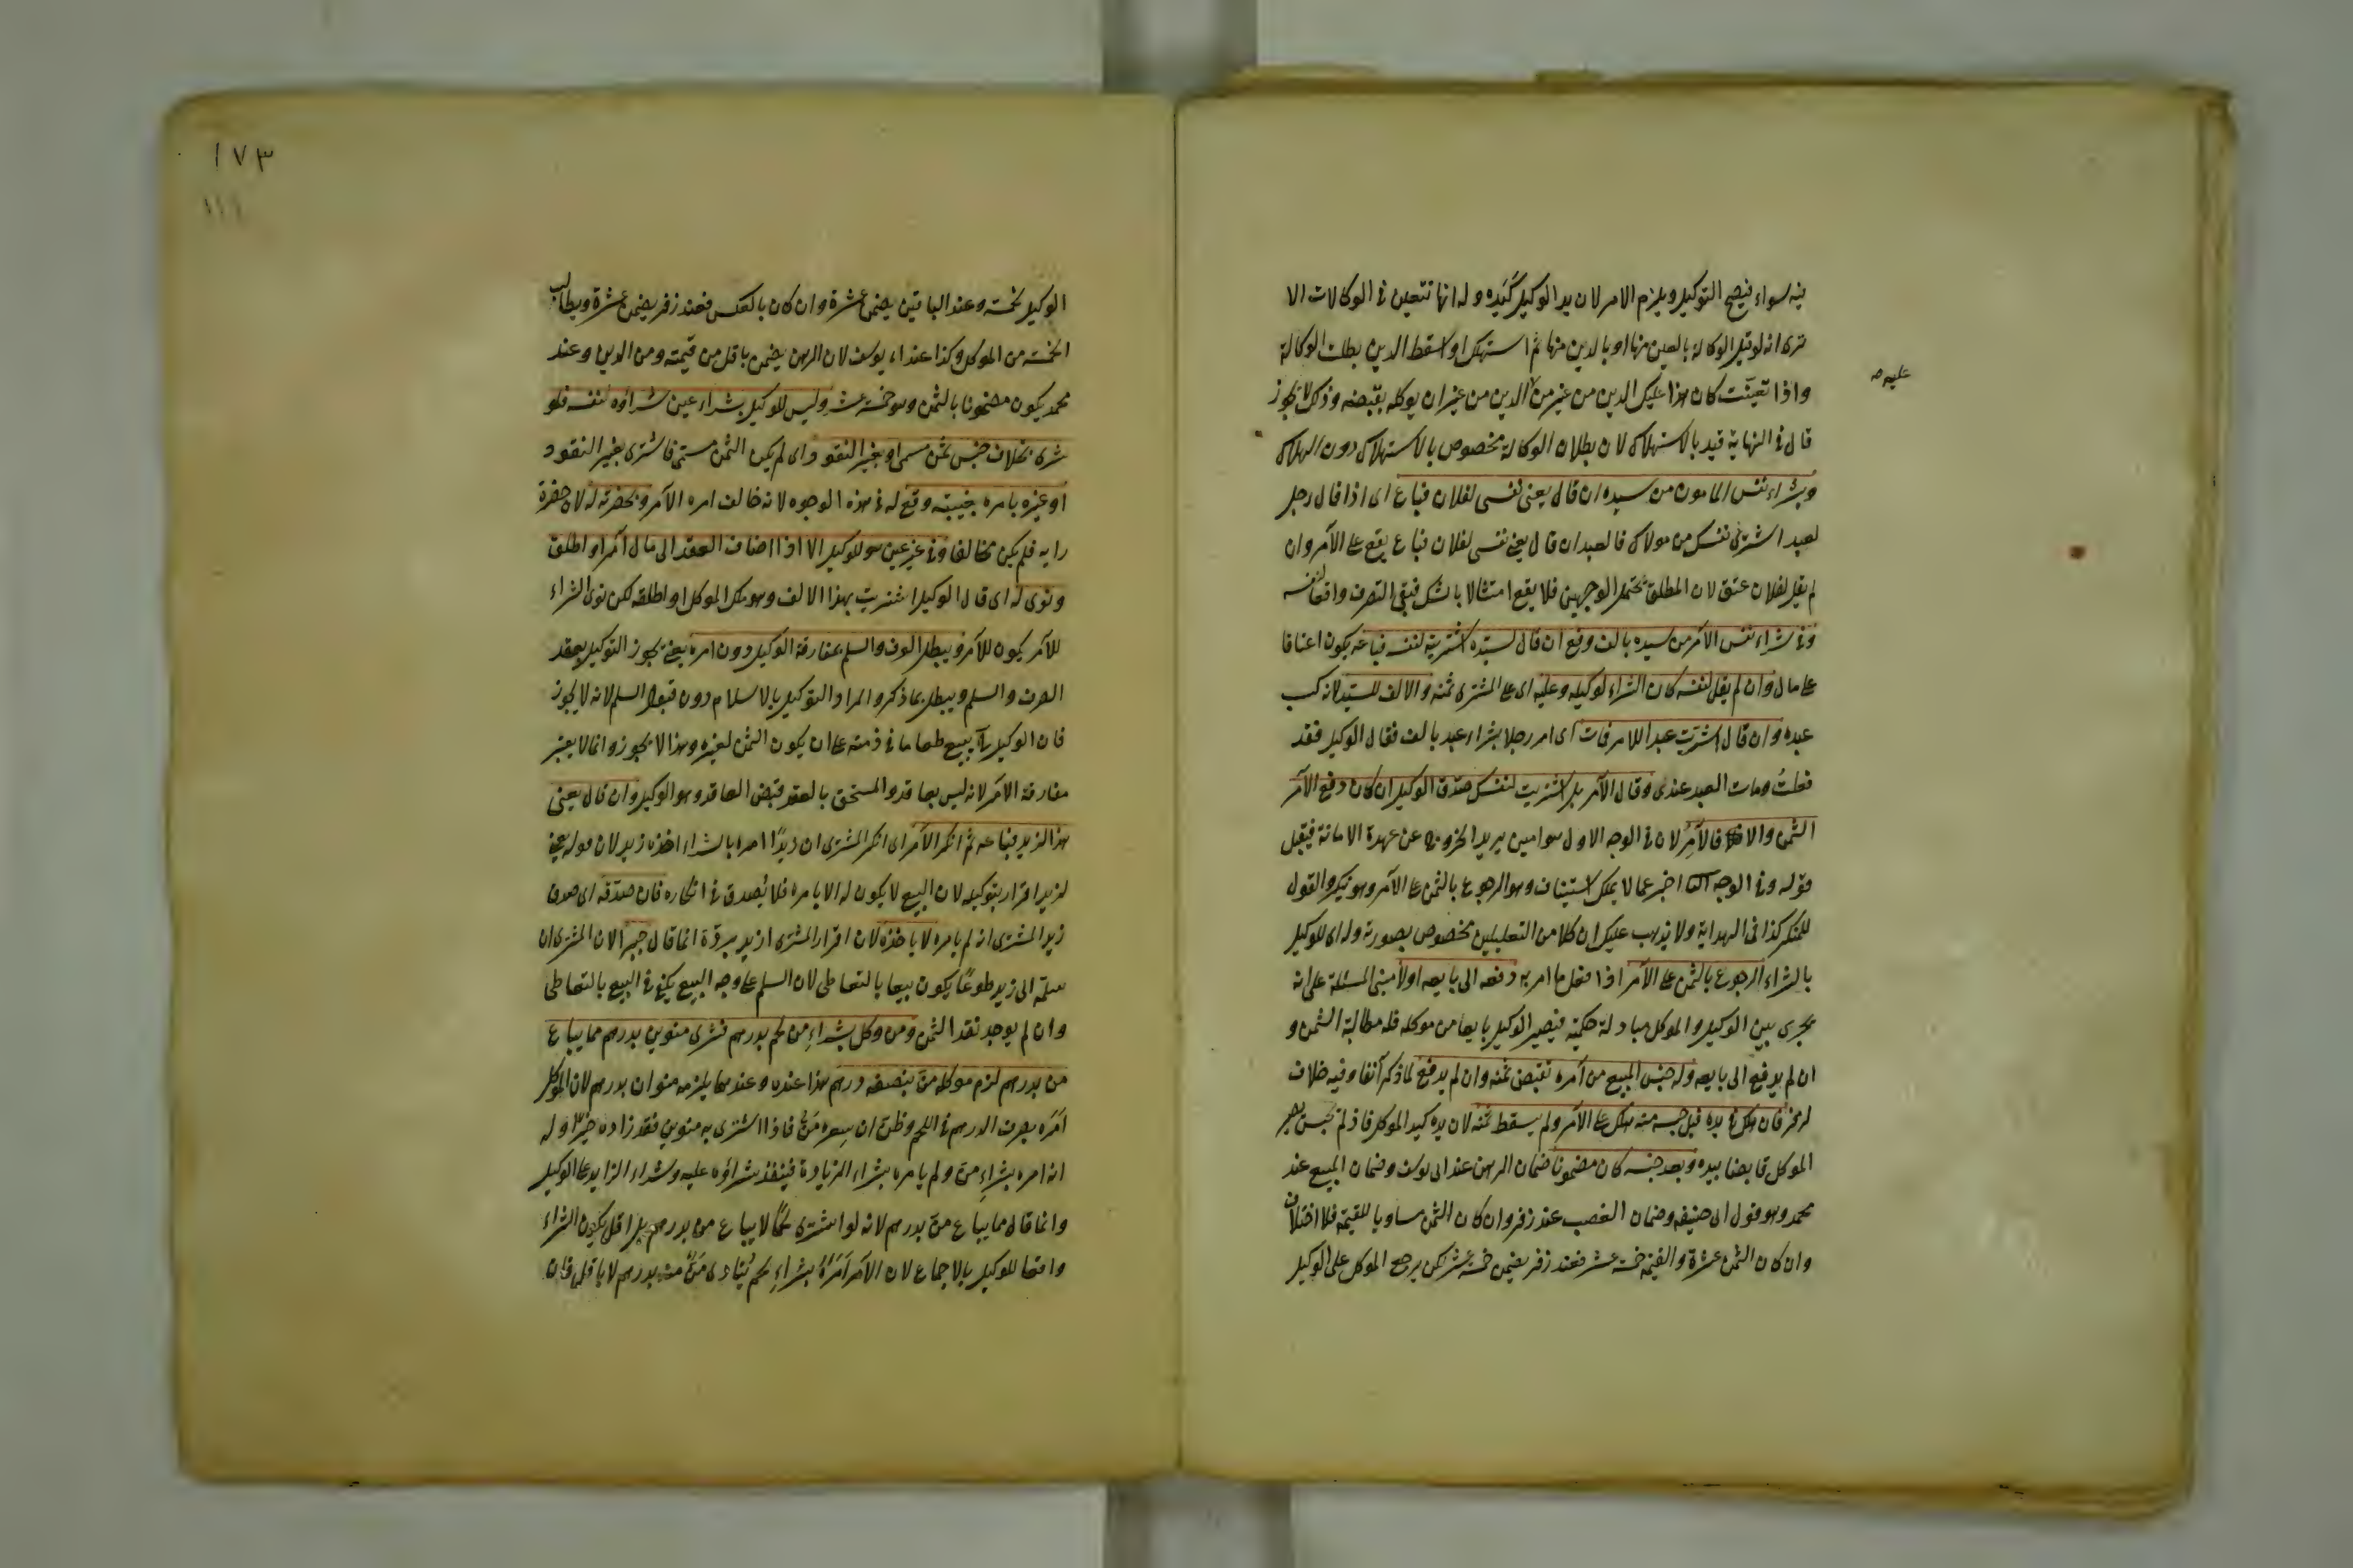 فيه سواء فيصح التوكيل ويلزم الامر لان يد الوكيل كيده وله انها تتعين في الوكالات الا
ترى انه لو قيد الوكالة بالعين منها او بالدين منها ثم استهلك او اسقط الدين بطلت الوكالة
واذا تعينت كان هذا تمليك الدين من غير من الدين من غير ان يوكله بقبضه وذلك لا يجوز
عليه صح
قال في النهاية قيد بالاستهلاك لان بطلان الوكالة مخصوص بالاستهلاك دون الهلاك
وبشراء نفس المامور من سيده ان قال بعنى نفسى لفلان فباع اى اذا قال رجل
لعبد اشتر لى نفسك من مولاك فالعبد ان قال بعنى نفسى لفلان فباع يقع على الآمر وان
لم يقل لفلان عتق لان المطلق يحتمل الوجهين فلا يقع امتثالا بالشك فبقى التصرف واقعا لنفسه
وفي شراء نفس الآمر من سيده بالف دفع ان قال لسيده اشتريته لنفسه فباعه يكون اعتاقا
على مال وان لم يقل لنفسه كان الشراء لوكيله وعليه اى على المشترى ثمنه والالف للسيد لانه كسب
عبده وان قال اشتريت عبدا للامر فمات اى امر رجلا بشراء عبد بالف فقال الوكيل فقد
فعلت ومات العبد عندى وقال الآمر بل اشتريت لنفسك صدق الوكيل ان كان دفع الآمر
الثمن والا فالآمر لان في الوجه الاول هو امين يريد الخروج عن عهدة الامانة فيقبل
قوله وفي الوجه الثانى اخبر عما لا يملك استينافه وهو الرجوع بالثمن على الآمر وهو ينكر والقول
للمنكر كذا في الهداية ولا يذهب عليك ان كلا من التعليلين مخصوص بصورة وله اى للوكيل
بالشراء الرجوع بالثمن على الآمر اذا فعل ما امر به دفعه الى بايعه اولا مبنى المسئلة على انه
يجرى بين الوكيل والموكل مبادلة حكمية فيصير الوكيل بايعا من موكله فله مطالبة الثمن و
ان لم يدفع الى بايعه وله حبس المبيع من آمره لقبض ثمنه وان لم يدفع لما ذكر آنفا وفيه خلاف
لزفر فان هلك في يده قبل حبسه منه هلك على الآمر ولم يسقط ثمنه لان يده كيد الموكل فاذا لم يحبس يصير
الموكل قابضا بيده وبعد حبسه كان مضمونا ضمان الرهن عند ابى يوسف وضمان المبيع عند
محمد وهو قول ابى حنيفة وضمان الغصب عند زفر وان كان الثمن مساويا للقيمة فلا اختلاف
وان كان الثمن عشرة والقيمة خمسة عشر فعند زفر يضمن خمسة عشر لكن يرجع الموكل على الوكيل
١٧٣
١١١
الوكيل بخمسة وعند الباقين يضمن عشرة وان كان بالعكس فعند زفر يضمن عشرة ويطالب
الخمسة من الموكل وكذا عند ابى يوسف لان الرهن يضمن باقل من قيمته ومن الدين وعند
محمد يكون مضمونا بالثمن وهو خمسة عشر وليس للوكيل بشراء عين شراؤه لنفسه فلو
شرى بخلاف جنس ثمن سمى او بغير النقود اى لم يكن الثمن مسمى فاشترى بغير النقود
او غيره بامره بغيبته وقع له في هذه الوجوه لانه خالف امره الآمر وبحضرته له لان حضرة
رايه فلم يكن مخالفا وفي غير عين هو للوكيل الا اذا اضاف العقد الى مال آمره او اطلق
ونوى له اى قال الوكيل اشتريت بهذا الالف وهو ملك الموكل او اطلقه لكن نوى الشراء
للآمر يكون للآمر ويبطل الصرف والسلم بمفارقة الوكيل دون امره يعنى يجوز التوكيل بعقد
الصرف والسلم ويبطل بما ذكر والمراد التوكيل بالاسلام دون قبول السلم لانه لا يجوز
فان الوكيل يبيع طعاما في ذمته على ان يكون الثمن لغيره وهذا لا يجوز وانما لا يعتبر
مفارقة الآمر لانه ليس بعاقد والمستحق بالعقد قبض العاقد وهو الوكيل وان قال بعنى
هذا لزيد فباعه ثم انكر الآمر اى انكر المشترى ان زيدا امره بالشراء اخذه زيد لان قوله بعنى
لزيد اقرار بتوكيله لان البيع لا يكون له الا بامره فلا يصدق في انكاره فان صدقه اى صدق
زيد المشترى انه لم يامره لا ياخذه لان اقرار المشترى ارتد برده انما قال جبرا لان المشترى ان
سلمه الى زيد طوعا يكون بيعا بالتعاطى لان السلم على وجه البيع يكفى في البيع بالتعاطى
وان لم يوجد نقد الثمن ومن وكل بشراء من لحم بدرهم فشرى منوين بدرهم مما يباع
من بدرهم لزم موكله من بنصف درهم هذا عنده وعندهما يلزمه منوان بدرهم لان الموكل
امره بصرف الدرهم في اللحم وظن ان سعره من فاذا اشترى به منوين فقد زاده خيرا وله
انه امره بشراء من ولم يامره بشراء الزيادة فينفذ شراؤه عليه وشراء الزايد على الوكيل
وانما قال مما يباع من بدرهم لانه لو اشترى لحما لا يباع من بدرهم بل اقل يكون الشراء
واقعا للوكيل بالاجماع لان الآمر امره بشراء لحم يساوى من منه بدرهم لا باقل فان